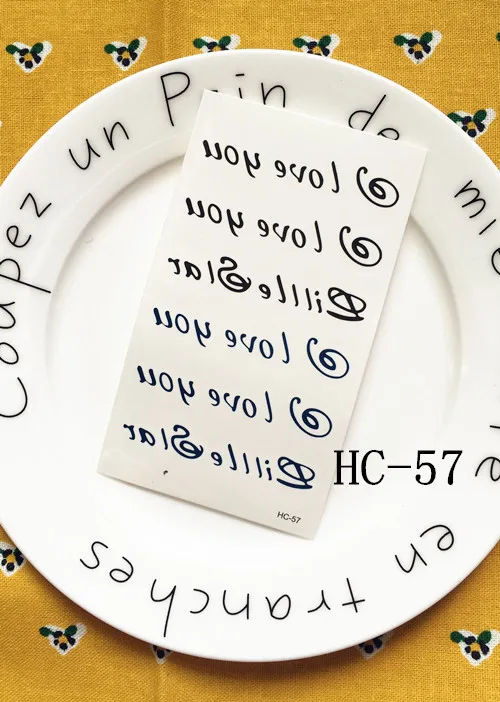 Coupez un Pain de mie
en tranches
I love you
I love you
Little Star
I love you
I love you
Little Star
HC-57
HC-57